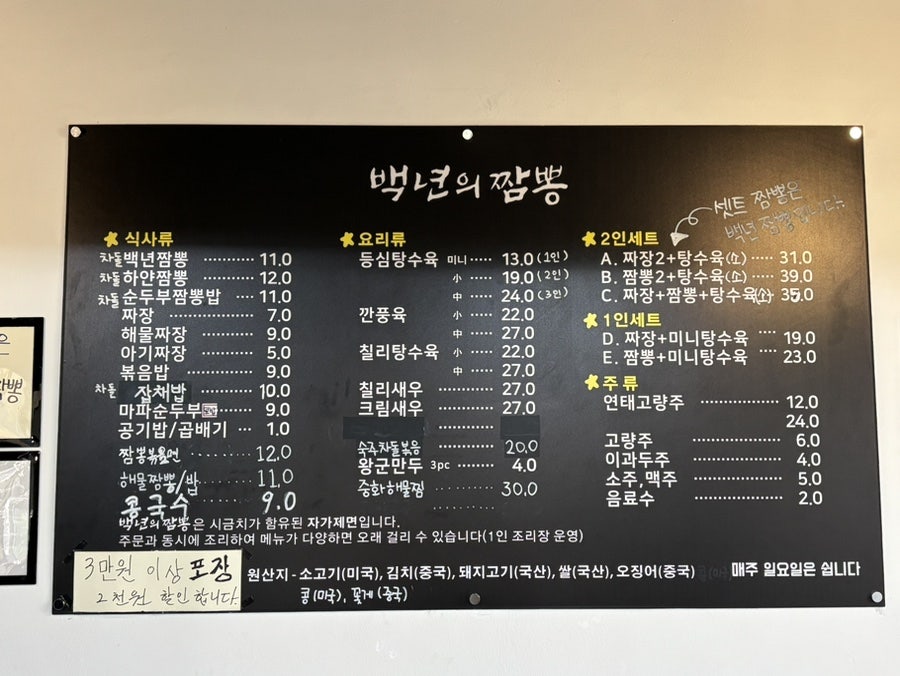 백년의 짬뽕
셋트 짬뽕은
백년짬뽕입니다
식사류
차돌백년짬뽕 ········ 11.0
차돌하얀짬뽕 ········ 12.0
차돌순두부짬뽕밥 ···· 11.0
짜장 ········ 7.0
해물짜장 ········ 9.0
아기짜장 ········ 5.0
볶음밥 ········ 9.0
차돌 잡채밥 ········ 10.0
마파순두부밥 ······ 9.0
공기밥/곱배기 ··· 1.0
짬뽕볶음면 ········ 12.0
해물짬뽕/밥 ······ 11.0
콩국수 9.0
요리류
등심탕수육 미니 ····· 13.0 (1인)
小 ····· 19.0 (2인)
中 ····· 24.0 (3인)
깐풍육 小 ····· 22.0
中 ····· 27.0
칠리탕수육 小 ····· 22.0
中 ····· 27.0
칠리새우 ········ 27.0
크림새우 ········ 27.0
숙주차돌볶음 ········ 20.0
왕군만두 3pc ······ 4.0
중화해물찜 ········ 30.0
2인세트
A. 짜장2+탕수육(小) ···· 31.0
B. 짬뽕2+탕수육(소) ···· 39.0
C. 짜장+짬뽕+탕수육(소) 35.0
1인세트
D. 짜장+미니탕수육 ···· 19.0
E. 짬뽕+미니탕수육 ···· 23.0
주류
연태고량주 ········ 12.0
24.0
고량주 ········ 6.0
이과두주 ········ 4.0
소주,맥주 ········ 5.0
음료수 ········ 2.0
백년의짬뽕은 시금치가 함유된 자가제면입니다.
주문과 동시에 조리하여 메뉴가 다양하면 오래 걸리 수 있습니다(1인 조리장 운영)
3만원 이상 포장
2천원 할인합니다.
원산지 - 소고기(미국), 김치(중국), 돼지고기(국산), 쌀(국산), 오징어(중국)
콩(미국), 꽃게(중국)
매주 일요일은 쉽니다
은
짬뽕